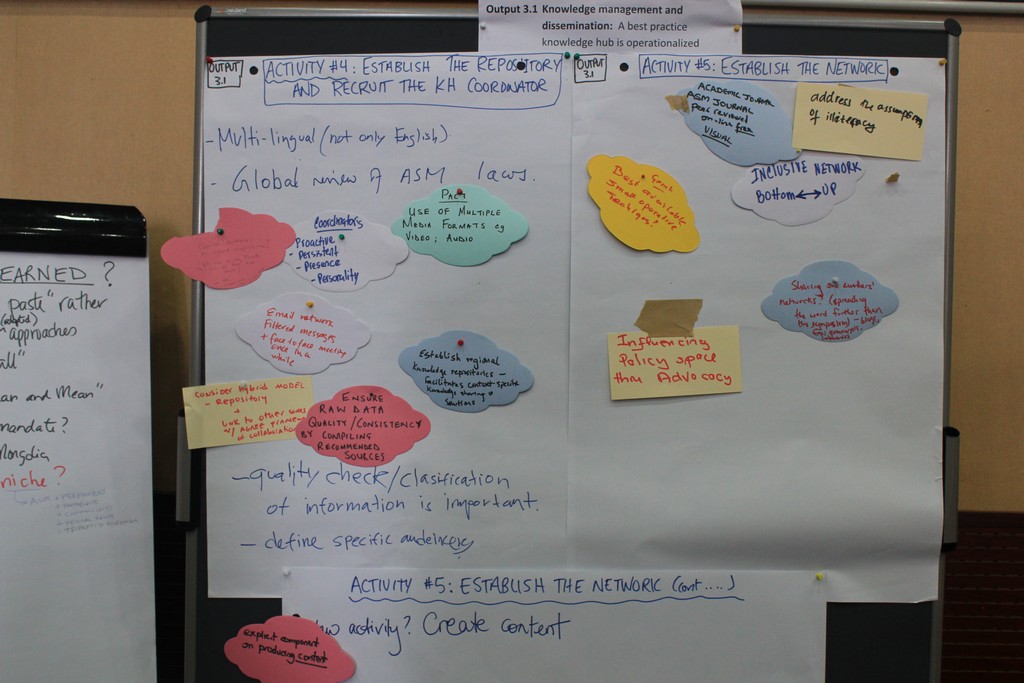 Output 3.1 Knowledge management and
dissemination: A best practice
knowledge hub is operationalized
OUTPUT
3.1
ACTIVITY #4: ESTABLISH THE REPOSITORY
AND RECRUIT THE KH COORDINATOR
- Multi-lingual (not only English)
- Global review of ASM laws.
Coordinators
- Proactive
- Persistent
- Presence
- Personality
PACT
USE OF MULTIPLE
MEDIA FORMATS eg
VIDEO; AUDIO
Email network
Filtered messages
+ face to face meeting
once in a
while
Establish regional
knowledge repositories -
facilitates context-specific
knowledge sharing +
solutions
CONSIDER HYBRID MODEL
- REPOSITORY
+
LINK TO OTHER
ENSURE
RAW DATA
QUALITY/CONSISTENCY
BY COMPILING
RECOMMENDED
SOURCES
- quality check/clasification
of information is important.
- define specific
OUTPUT
3.1
ACTIVITY #5: ESTABLISH THE NETWORK
ACADEMIC
ASM JOURNAL
peer reviewed
on-line free
VISUAL
address the
of illiteracy
Best available
small operative
INCLUSIVE NETWORK
BOTTOM ↔ UP
Sharing our
networks! (spreading
the word further than
the symposium) -
Influencing
Policy space
than Advocacy
ACTIVITY #5: ESTABLISH THE NETWORK (cont....)
activity? Create content
explicit component
on producing content
EARNED ?
paste" rather
(adapted)
approaches
all"
an and Mean"
mandate?
Mongolia
niche ?